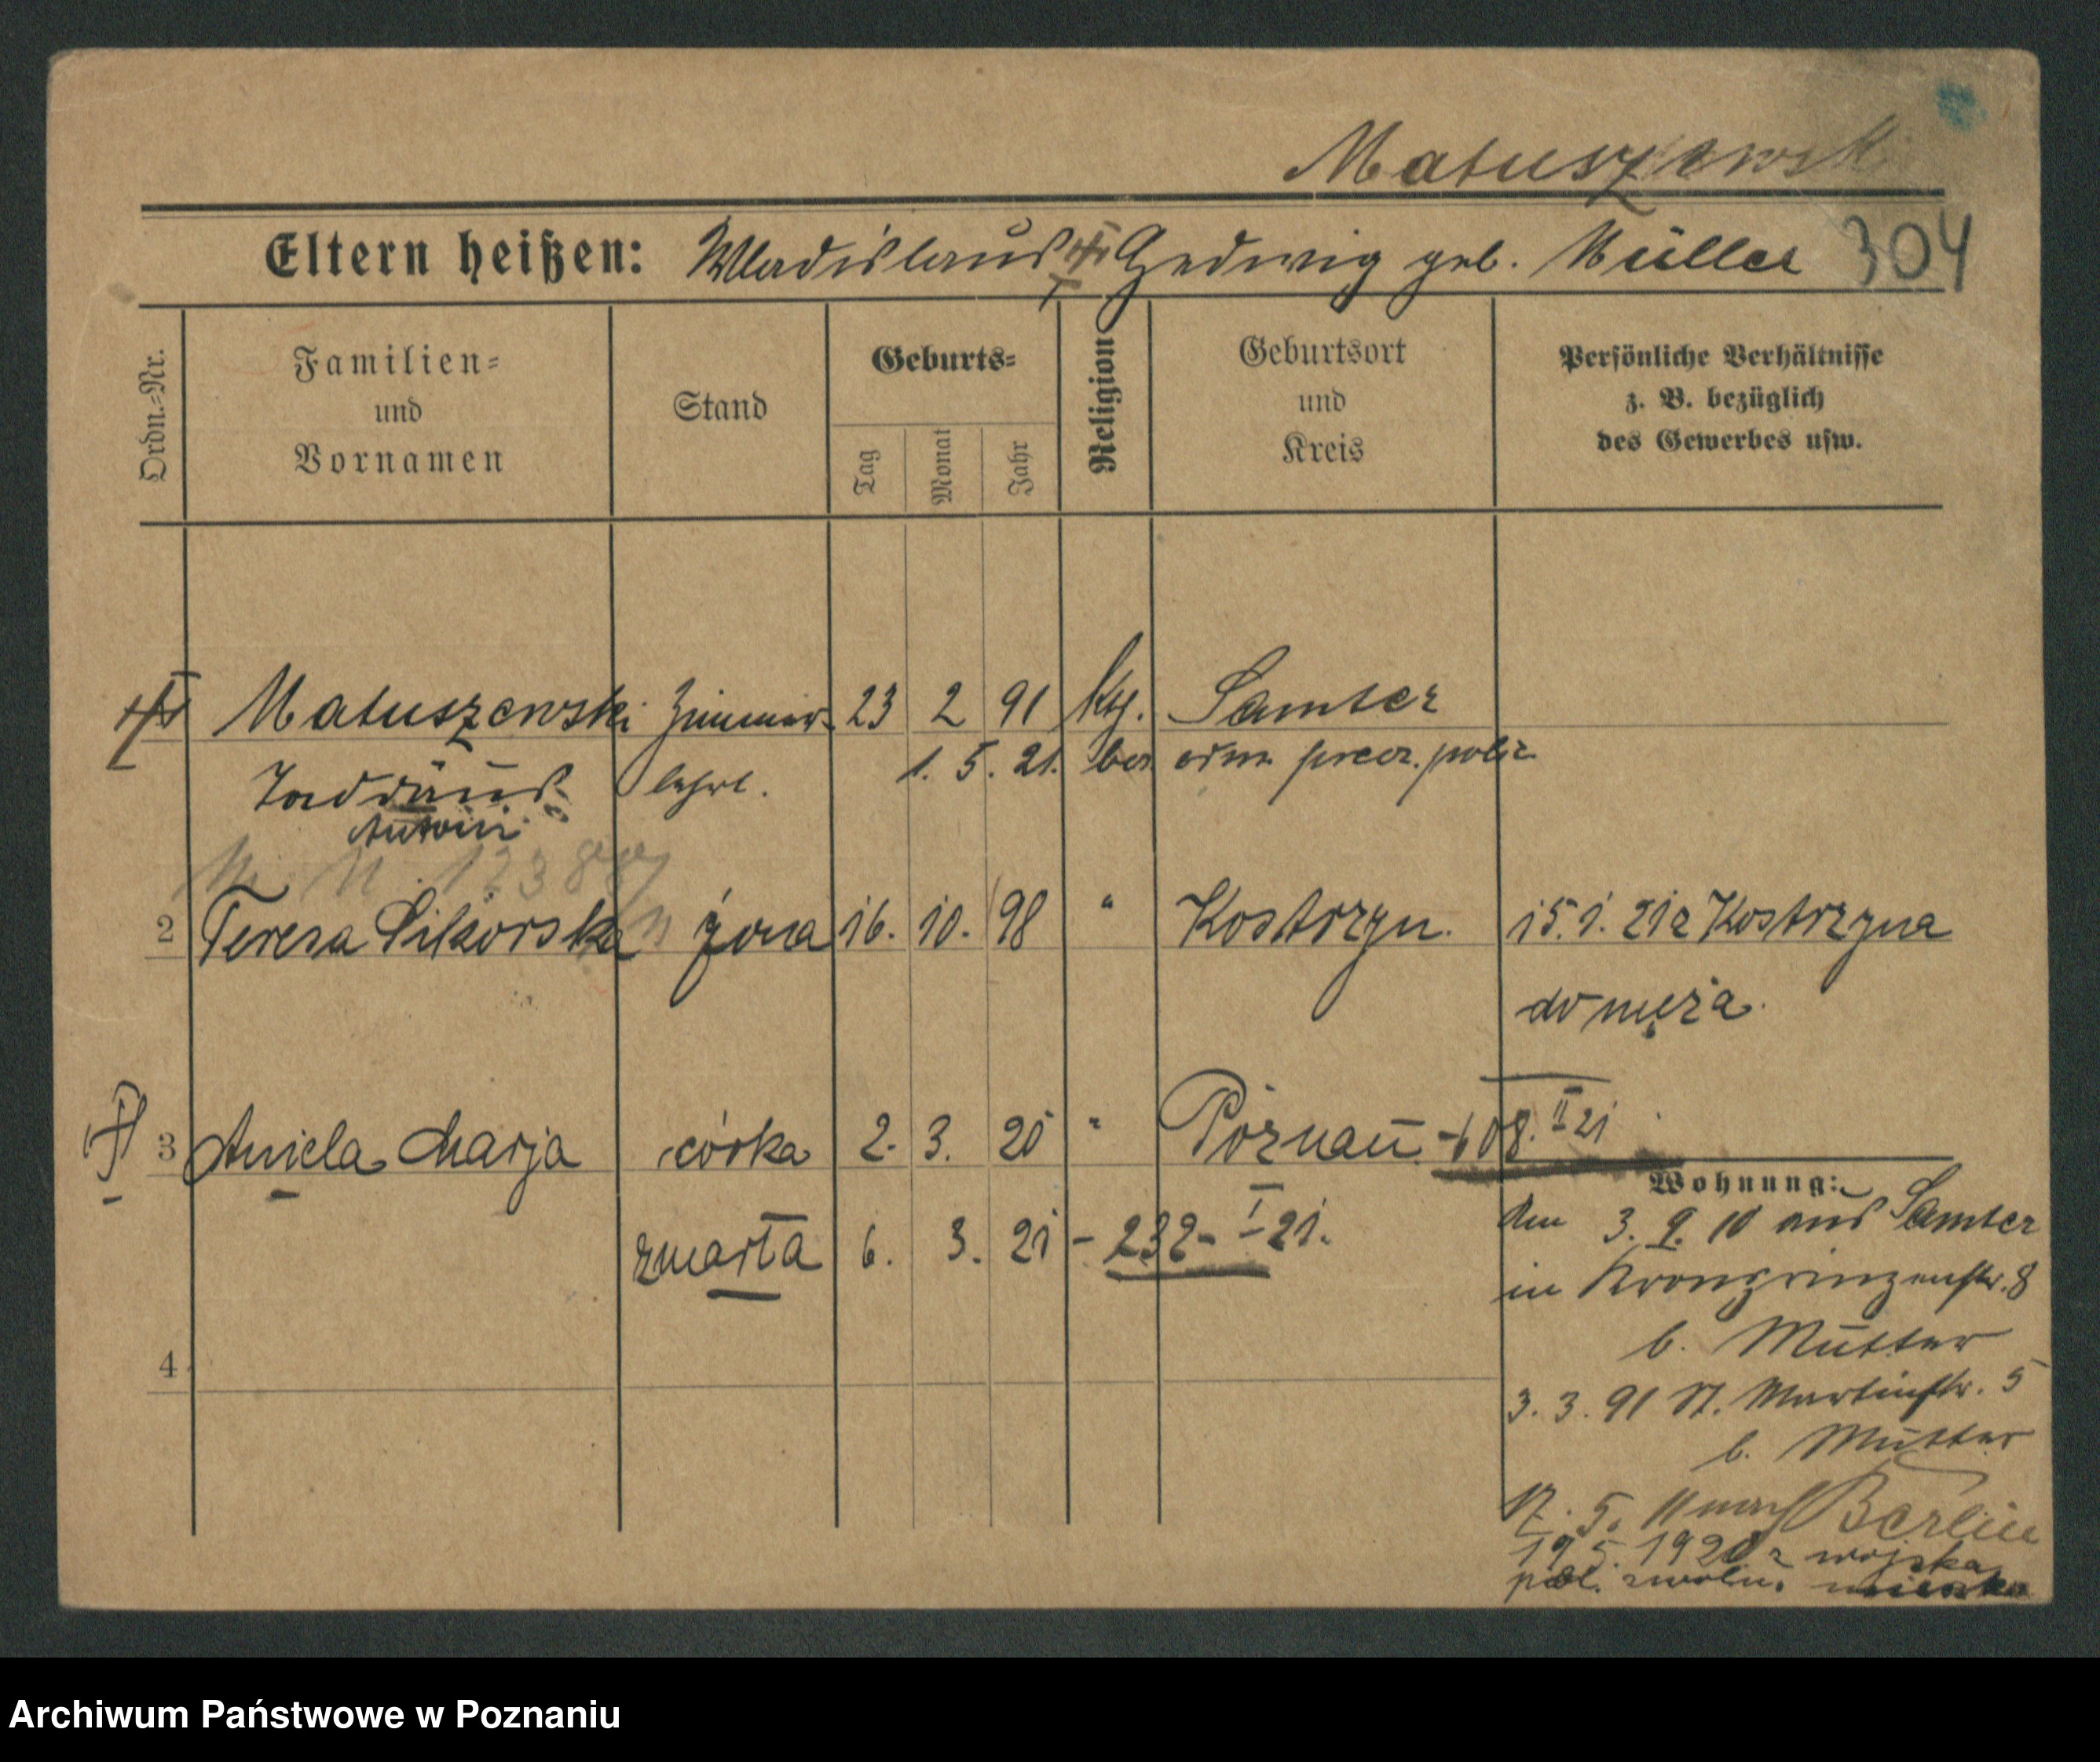 Matuszewski
Eltern heißen: Wladislaus Hedwig geb. Müller 304
Ordn.-Nr.
Familien-
und
Vornamen
Stand
Geburts-
Tag
Monat
Jahr
Religion
Geburtsort
und
Kreis
Persönliche Verhältnisse
z. B. bezüglich
des Gewerbes usw.
Matuszewski Zimmer- 23 2 91 Kth. Samter
Taddäus lehrl. 1. 5. 21. polic
Antoni
12387
2 Teresa Sikorska żona 16. 10. 98 " Kostrzyn. 15.1.21 z Kostrzyna
do męża.
3 Aniela Marja córka 2. 3. 20 " Poznań 108. II 21
zmarła 6. 3. 21 - 232 - I 21.
Wohnung:
den 3. 9. 10 aus Samter
in Kronprinzenstr. 8
b. Mutter
3. 3. 91 St. Martinstr. 5
b. Mutter
4
17. 5. 11 nach Berlin
19 5. 1920 z wojska
pol. zwoln.
Archiwum Państwowe w Poznaniu